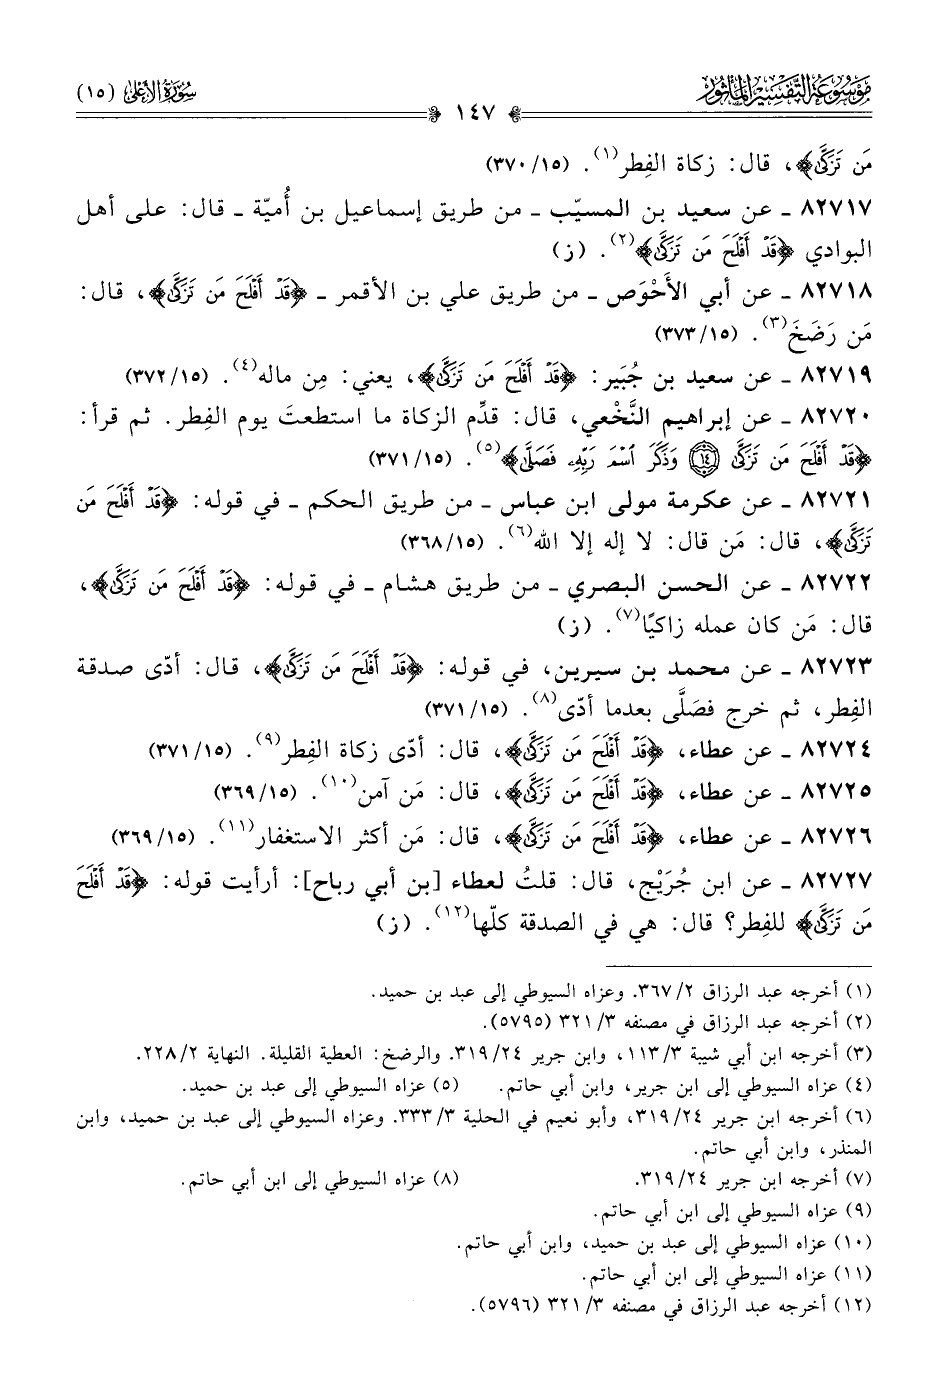 مَوْسُوعَة التَّفْسِير المَأثُور
سُورَةُ الأَعْلَى (١٥)
١٤٧
مَن تَزَكَّىٰ﴾، قال: زكاة الفِطر(١). (٣٧٠/١٥)
٨٢٧١٧ ـ عن سعيد بن المسيّب ـ من طريق إسماعيل بن أُميّة ـ قال: على أهل
البوادي ﴿قَدْ أَفْلَحَ مَن تَزَكَّىٰ﴾(٢). (ز)
٨٢٧١٨ ـ عن أبي الأَحْوَص ـ من طريق علي بن الأقمر ـ ﴿قَدْ أَفْلَحَ مَن تَزَكَّىٰ﴾، قال:
مَن رَضَخَ(٣). (٣٧٣/١٥)
٨٢٧١٩ ـ عن سعيد بن جُبَير: ﴿قَدْ أَفْلَحَ مَن تَزَكَّىٰ﴾، يعني: مِن ماله(٤). (٣٧٢/١٥)
٨٢٧٢٠ ـ عن إبراهيم النَّخْعي، قال: قدِّم الزكاة ما استطعتَ يوم الفِطر. ثم قرأ:
﴿قَدْ أَفْلَحَ مَن تَزَكَّىٰ ١٤ وَذَكَرَ ٱسْمَ رَبِّهِۦ فَصَلَّىٰ﴾(٥). (٣٧١/١٥)
٨٢٧٢١ ـ عن عكرمة مولى ابن عباس ـ من طريق الحكم ـ في قوله: ﴿قَدْ أَفْلَحَ مَن
تَزَكَّىٰ﴾، قال: مَن قال: لا إله إلا الله(٦). (٣٦٨/١٥)
٨٢٧٢٢ ـ عن الحسن البصري ـ من طريق هشام ـ في قوله: ﴿قَدْ أَفْلَحَ مَن تَزَكَّىٰ﴾،
قال: مَن كان عمله زاكيًا(٧). (ز)
٨٢٧٢٣ ـ عن محمد بن سيرين، في قوله: ﴿قَدْ أَفْلَحَ مَن تَزَكَّىٰ﴾، قال: أدّى صدقة
الفِطر، ثم خرج فصَلَّى بعدما أدّى(٨). (٣٧١/١٥)
٨٢٧٢٤ ـ عن عطاء، ﴿قَدْ أَفْلَحَ مَن تَزَكَّىٰ﴾، قال: أدّى زكاة الفِطر(٩). (٣٧١/١٥)
٨٢٧٢٥ ـ عن عطاء، ﴿قَدْ أَفْلَحَ مَن تَزَكَّىٰ﴾، قال: مَن آمن(١٠). (٣٦٩/١٥)
٨٢٧٢٦ ـ عن عطاء، ﴿قَدْ أَفْلَحَ مَن تَزَكَّىٰ﴾، قال: مَن أكثر الاستغفار(١١). (٣٦٩/١٥)
٨٢٧٢٧ ـ عن ابن جُرَيْج، قال: قلتُ لعطاء [بن أبي رباح]: أرأيت قوله: ﴿قَدْ أَفْلَحَ
مَن تَزَكَّىٰ﴾ للفِطر؟ قال: هي في الصدقة كلّها(١٢). (ز)
(١) أخرجه عبد الرزاق ٢/ ٣٦٧. وعزاه السيوطي إلى عبد بن حميد.
(٢) أخرجه عبد الرزاق في مصنفه ٣/ ٣٢١ (٥٧٩٥).
(٣) أخرجه ابن أبي شيبة ٣/ ١١٣، وابن جرير ٢٤/ ٣١٩. والرضخ: العطية القليلة. النهاية ٢/ ٢٢٨.
(٤) عزاه السيوطي إلى ابن جرير، وابن أبي حاتم. (٥) عزاه السيوطي إلى عبد بن حميد.
(٦) أخرجه ابن جرير ٢٤/ ٣١٩، وأبو نعيم في الحلية ٣/ ٣٣٣. وعزاه السيوطي إلى عبد بن حميد، وابن
المنذر، وابن أبي حاتم.
(٧) أخرجه ابن جرير ٢٤/ ٣١٩. (٨) عزاه السيوطي إلى ابن أبي حاتم.
(٩) عزاه السيوطي إلى ابن أبي حاتم.
(١٠) عزاه السيوطي إلى عبد بن حميد، وابن أبي حاتم.
(١١) عزاه السيوطي إلى ابن أبي حاتم.
(١٢) أخرجه عبد الرزاق في مصنفه ٣/ ٣٢١ (٥٧٩٦).